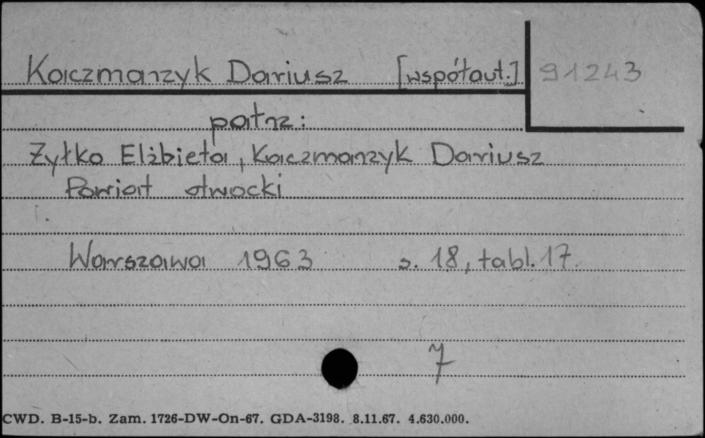 Kaczmarzyk Dariusz [współaut.] 91243
patrz:
Żyłko Elżbieta, Kaczmarzyk Dariusz
Powiat otwocki
Warszawa 1963 s. 18, tabl. 17.
7
CWD. B-15-b. Zam. 1726-DW-On-67. GDA-3198. 8.11.67. 4.630.000.